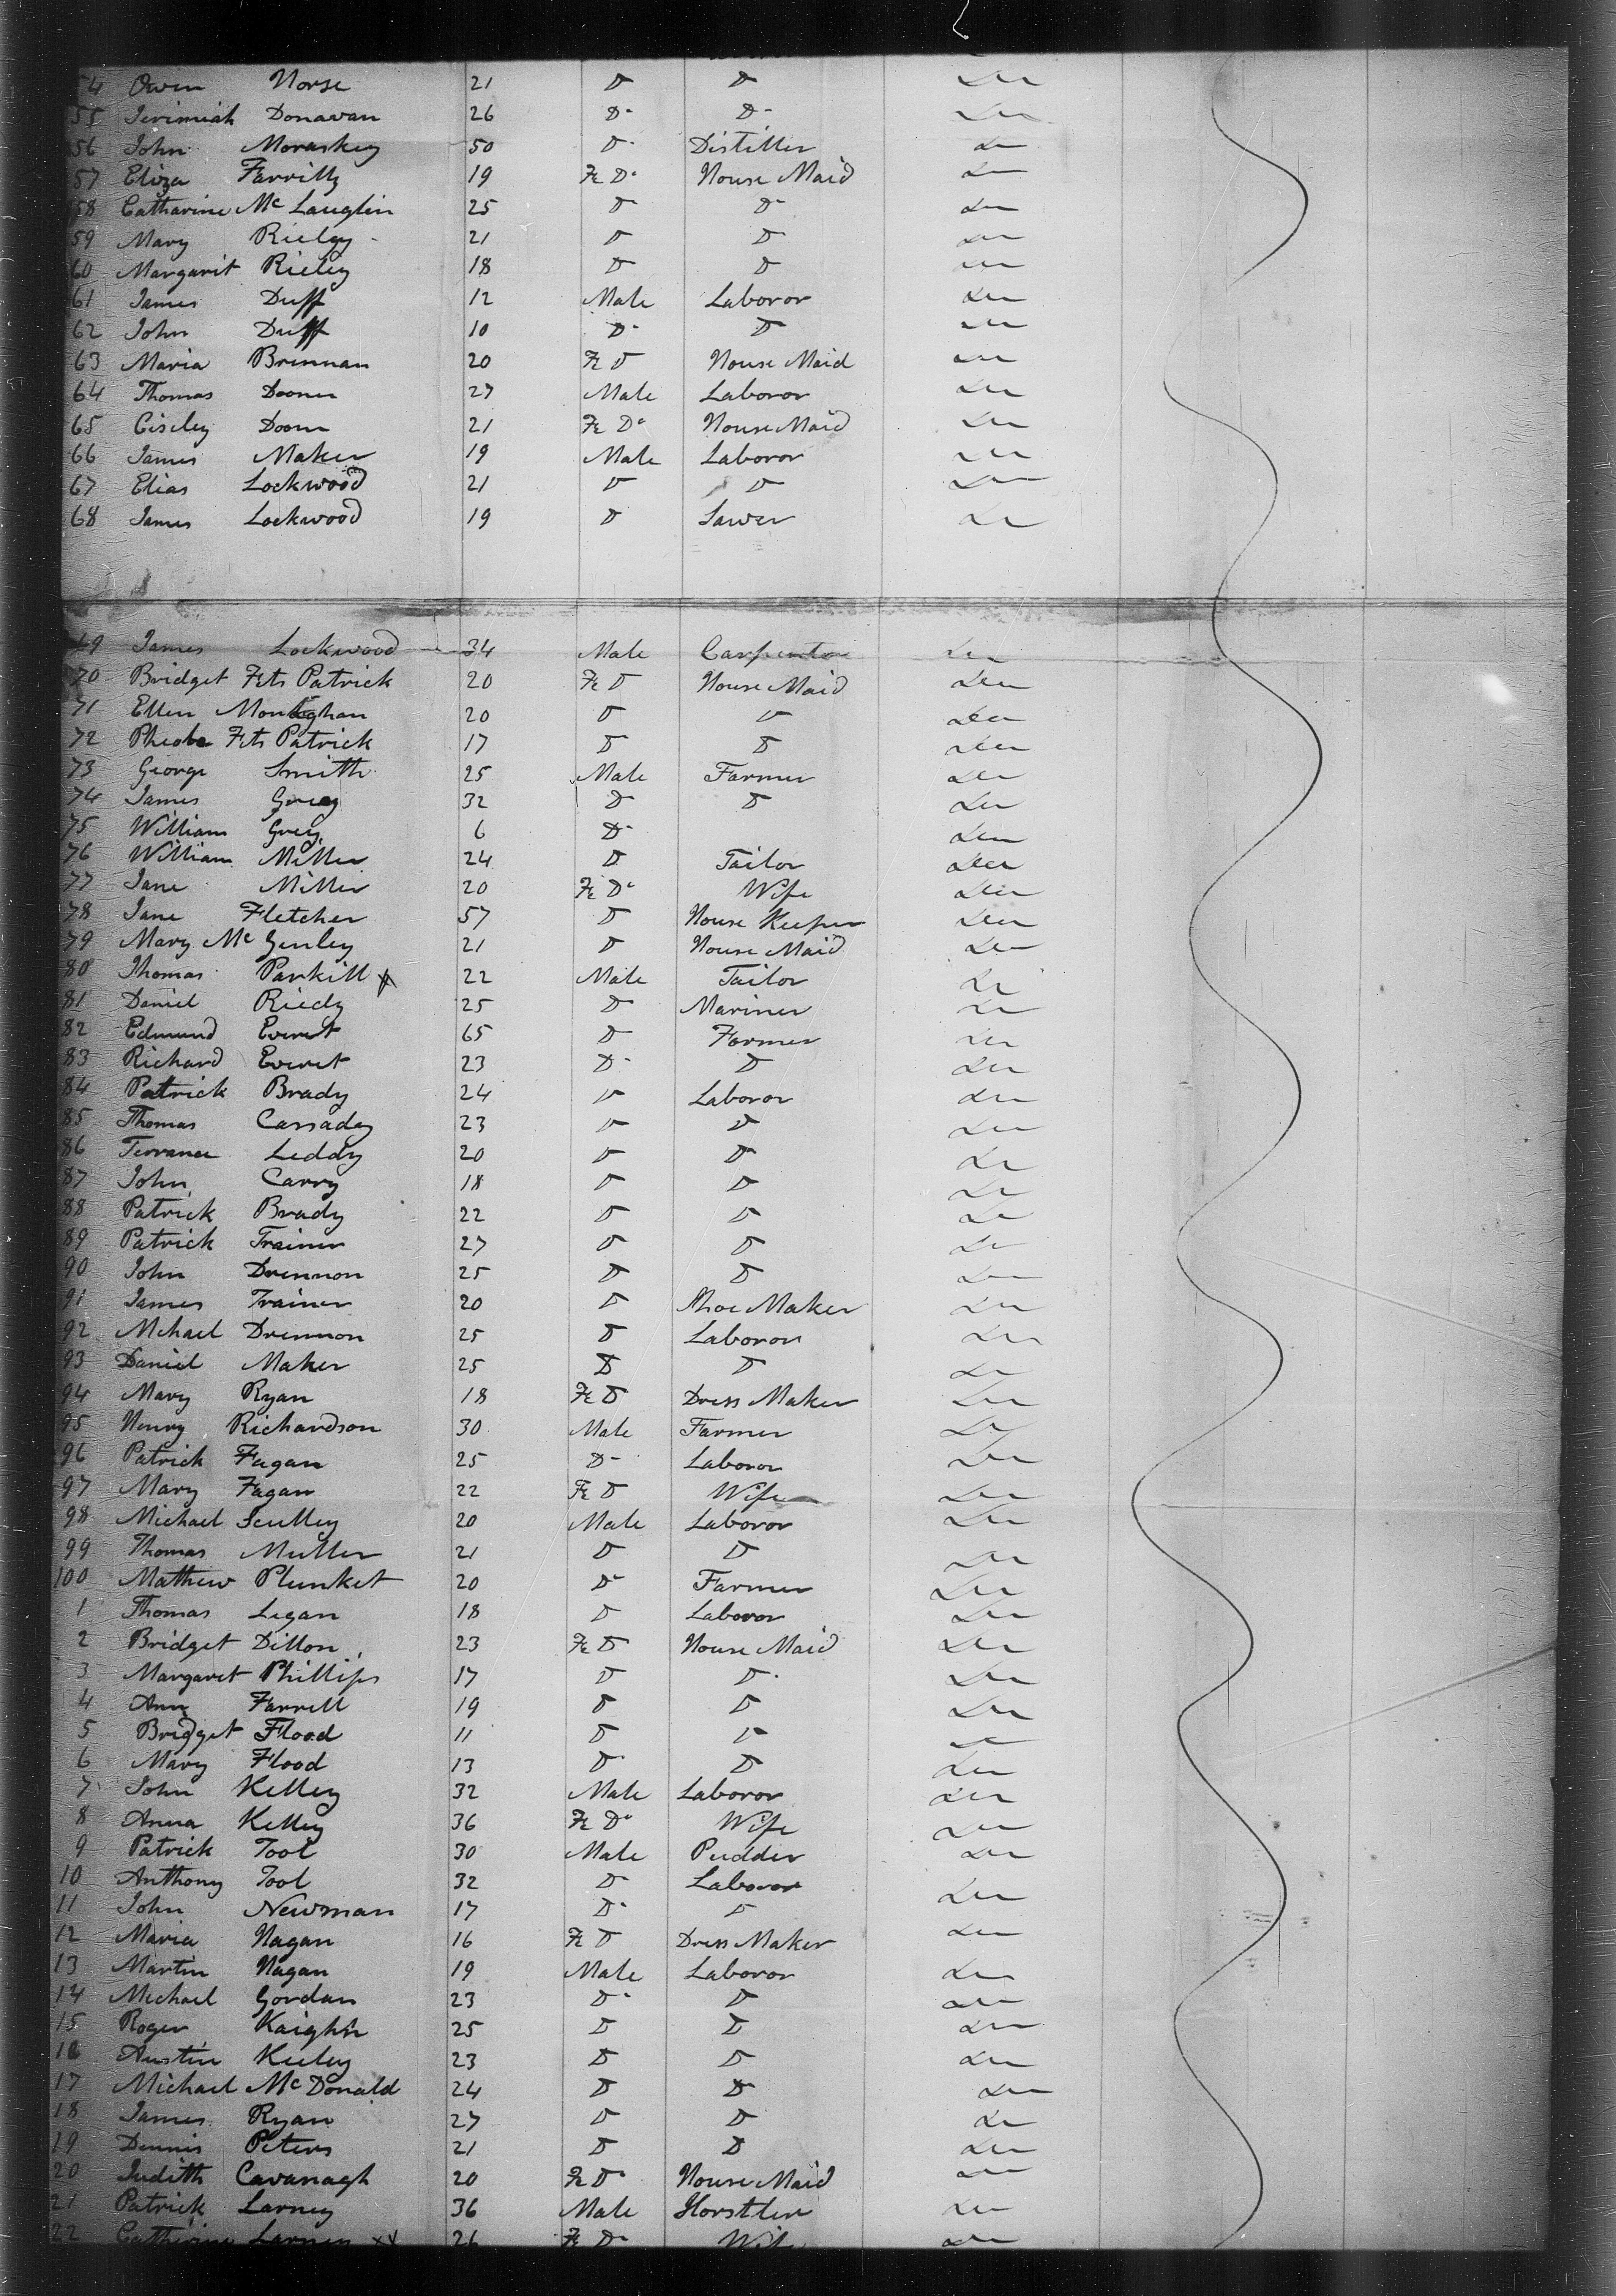 54 Owen Horse 21 D D
55 Jerimiah Donavan 26 Do Do
56 John Moraskey 50 D Distiller
57 Eliza Farrilly 19 Fe Do House Maid
58 Catharine Mc Lauglin 25 D D
59 Mary Rieley 21 D D
60 Margarit Rieley 18 D D
61 James Duff 12 Male Laboror
62 John Duff 10 D D
63 Maria Brennan 20 Fe D House Maid
64 Thomas Dooner 27 Male Laboror
65 Ciseley Doom 21 Fe Do House Maid
66 James Maker 19 Male Laboror
67 Elias Lockwood 21 D D
68 James Lockwood 19 D Sawer
69 James Lockwood 34 Male Carpenter
70 Bridget Fits Patrick 20 Fe D House Maid
71 Ellen Monaghan 20 D D
72 Pheobe Fits Patrick 17 D D
73 George Smith 25 Male Farmer
74 James Grey 32 D D
75 William Grey 6 D
76 William Miller 24 D Tailor
77 Jane Miller 20 Fe Do Wife
78 Jane Fletcher 57 D House Keeper
79 Mary Mc Genley 21 D House Maid
80 Thomas Parkill 22 Male Tailor
81 Daniel Riedy 25 D Mariner
82 Edmund Everet 65 D Farmer
83 Richard Everet 23 D D
84 Patrick Brady 24 D Laboror
85 Thomas Cassadey 23 D D
86 Terrance Leddy 20 D D
87 John Carry 18 D D
88 Patrick Brady 22 D D
89 Patrick Trainer 27 D D
90 John Drennon 25 D D
91 James Trainer 20 D Shoe Maker
92 Mchael Drennon 25 D Laboror
93 Daniel Maker 25 D D
94 Mary Ryan 18 Fe D Dress Maker
95 Henry Richardson 30 Male Farmer
96 Patrick Fagan 25 D Laboror
97 Mary Fagan 22 Fe D Wife
98 Michael Sculley 20 Male Laboror
99 Thomas Muller 21 D D
100 Mathew Plunket 20 D Farmer
1 Thomas Ligan 18 D Laboror
2 Bridget Dillon 23 Fe D House Maid
3 Margaret Phillips 17 D D
4 Ann Farrell 19 D D
5 Bridget Flood 11 D D
6 Mary Flood 13 D D
7 John Kelley 32 Male Laboror
8 Anna Kelley 36 Fe Do Wife
9 Patrick Tool 30 Male Pudder
10 Anthony Tool 32 D Laboror
11 John Newman 17 D D
12 Maria Hagan 16 Fe D Dress Maker
13 Martin Hagan 19 Male Laboror
14 Michael Gordan 23 D D
15 Roger Kaighn 25 D D
16 Austin Keeley 23 D D
17 Michael Mc Donald 24 D D
18 James Ryan 27 D D
19 Dennis Peters 21 D D
20 Judith Cavanagh 20 Fe D House Maid
21 Patrick Larney 36 Male Horstler
22 Catherine Larney 26 Fe Do Wife